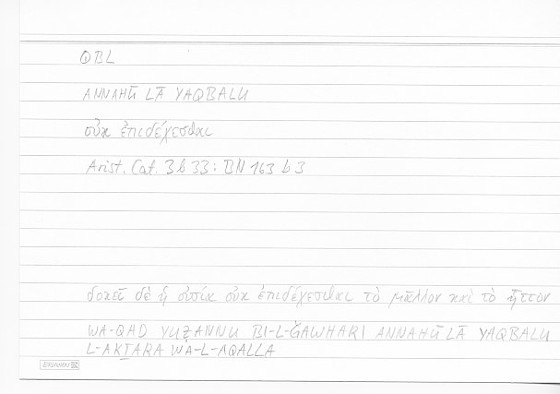 QBL
ANNAHŪ LĀ YAQBALU
οὐκ ἐπιδέχεσθαι
Arist. Cat. 3b33: BN 163 b3
δοκεῖ δὲ ἡ οὐσία οὐκ ἐπιδέχεσθαι τὸ μᾶλλον καὶ τὸ ἧττον
WA-QAD YUẒANNU BI-L-ǦAWHARI ANNAHŪ LĀ YAQBALU
L-AKṮARA WA-L-AQALLA